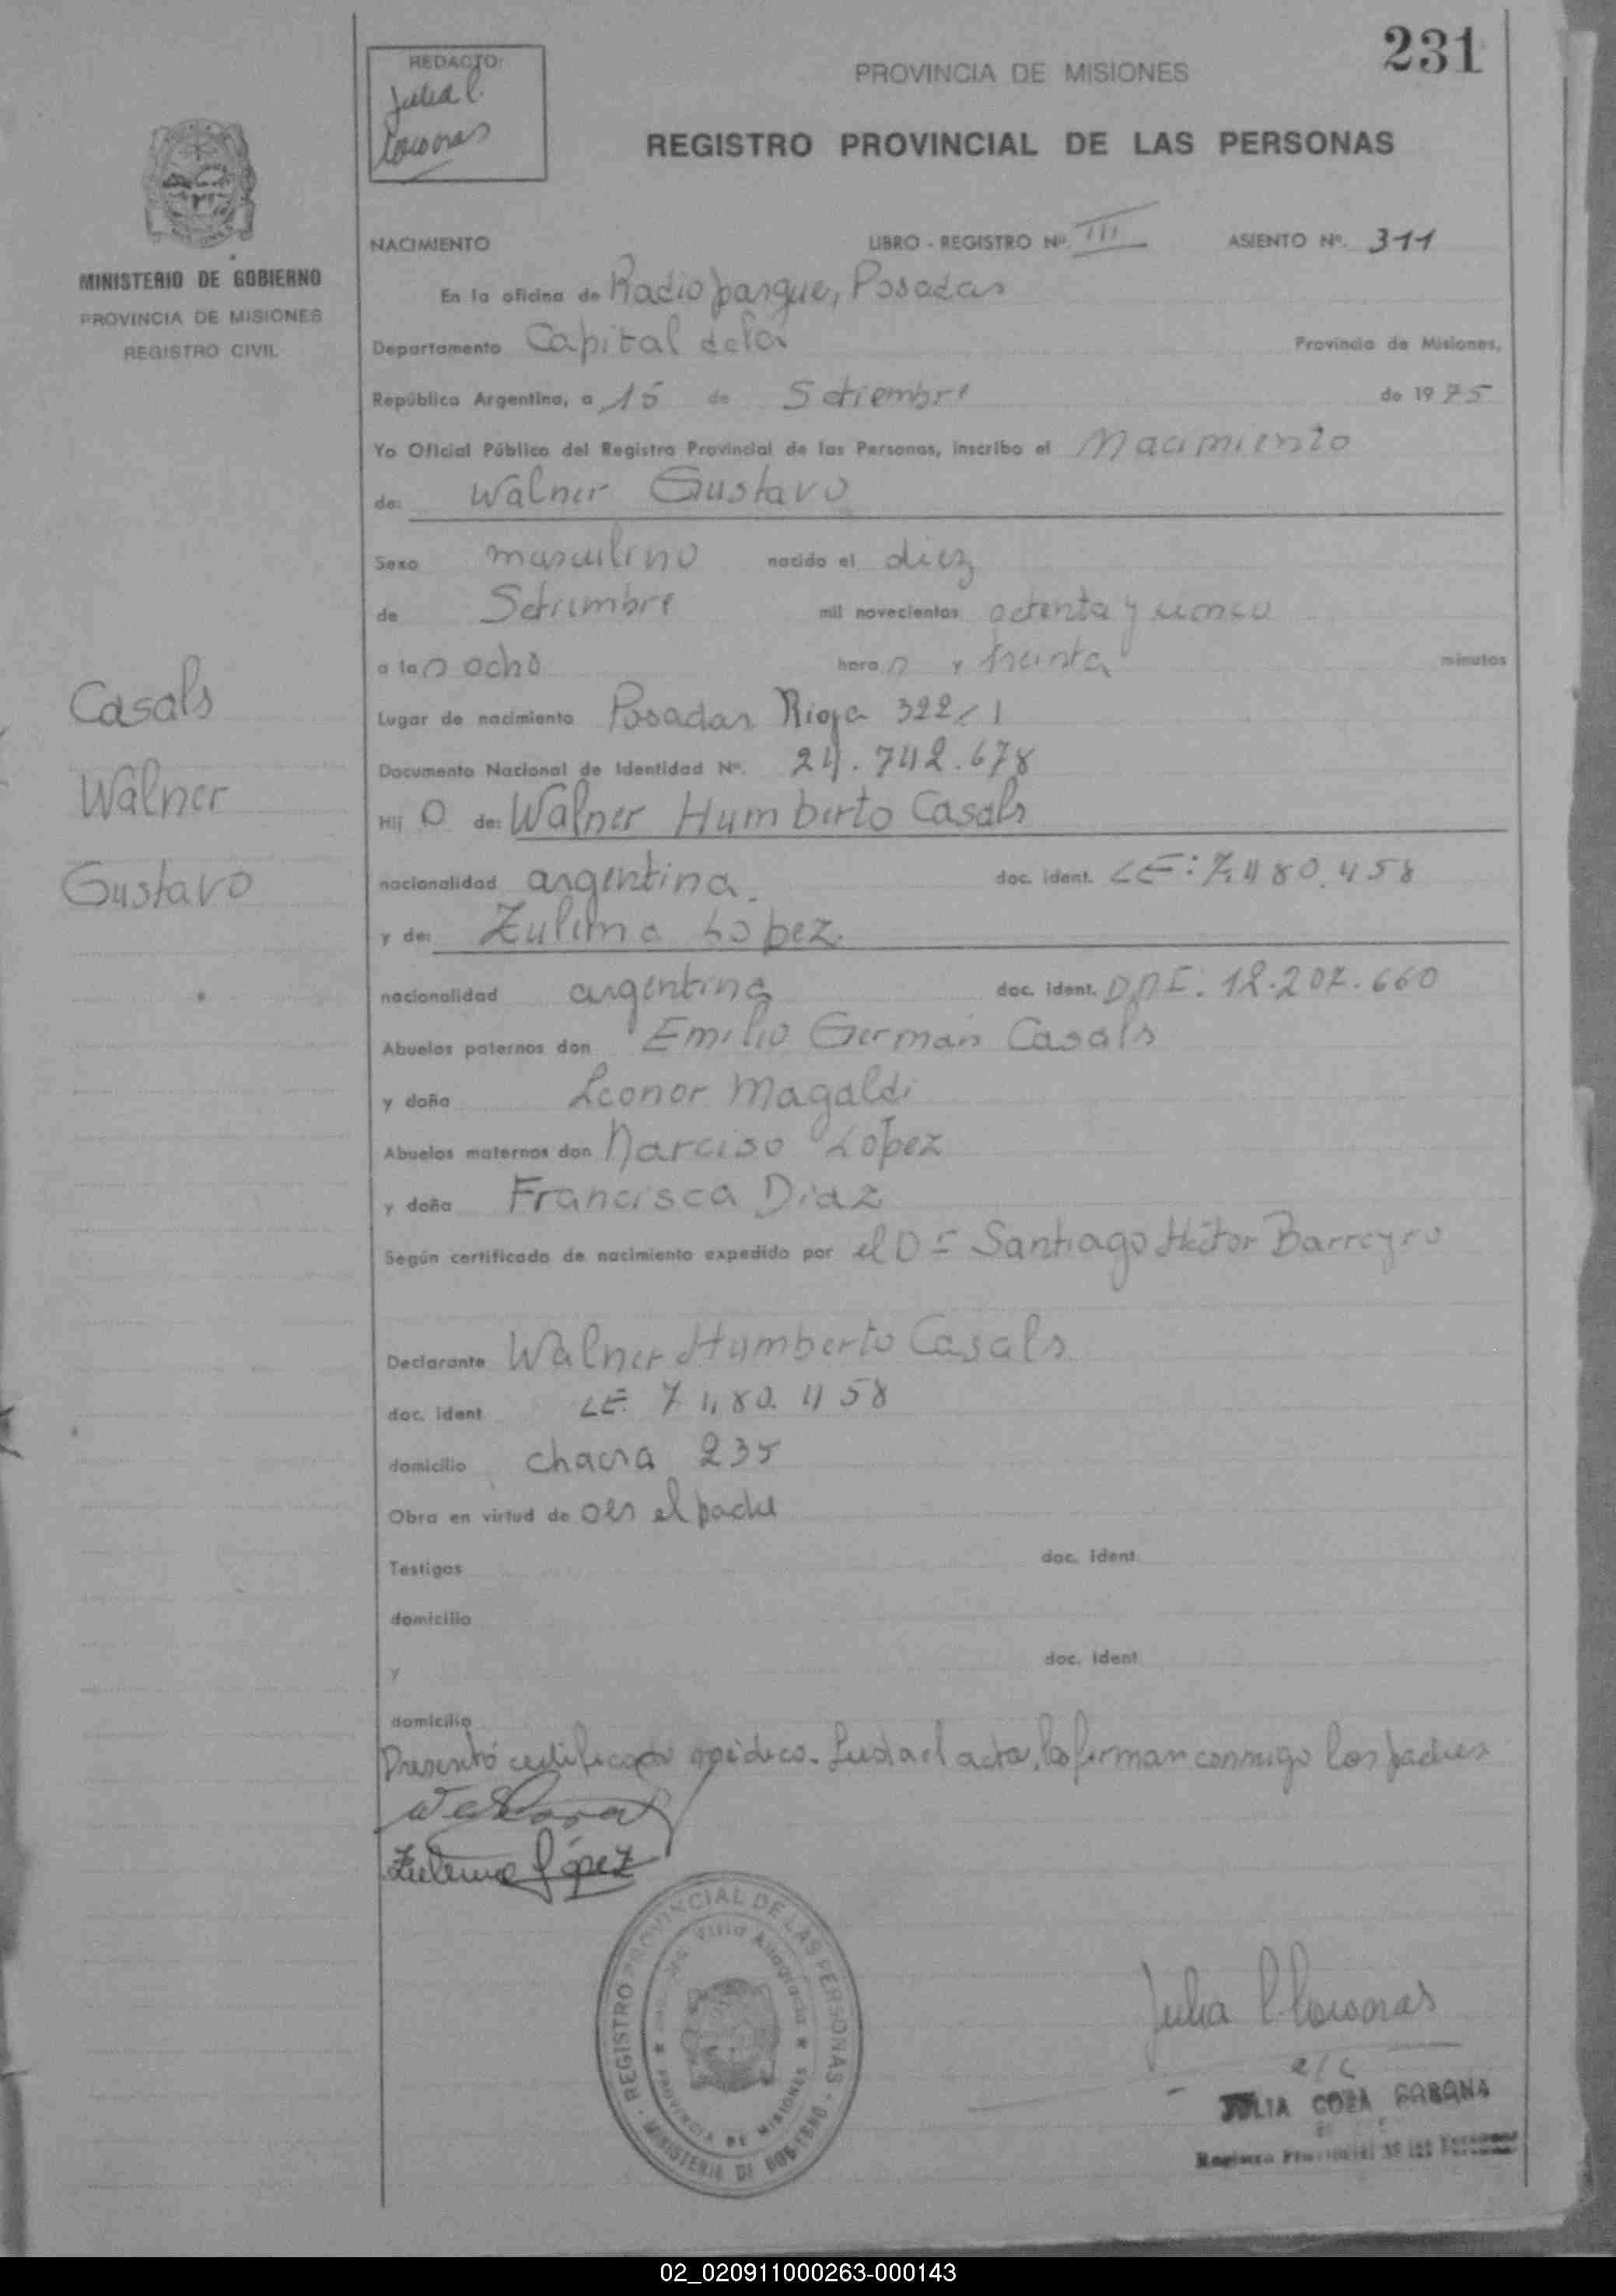 231
REDACTO:
Julia C.
PROVINCIA DE MISIONES
REGISTRO PROVINCIAL DE LAS PERSONAS
MINISTERIO DE GOBIERNO
PROVINCIA DE MISIONES
REGISTRO CIVIL
NACIMIENTO LIBRO - REGISTRO Nº. III ASIENTO Nº. 311
En la oficina de Radio parque, Posadas
Departamento Capital de la Provincia de Misiones,
República Argentina, a 15 de Setiembre de 1975
Yo Oficial Público del Registro Provincial de las Personas, inscribo el Nacimiento
de: Walner Gustavo
Sexo masculino nacido el diez
de Setiembre mil novecientos setenta y cinco
a las ocho horas y treinta minutos
Casals
Walner
Gustavo
Lugar de nacimiento Posadas Rioja 322
Documento Nacional de Identidad Nº. 24.742.678
Hij o de: Walner Humberto Casals
nacionalidad argentina. doc. ident. LE: 7.480.458
y de: Zulema Lopez.
nacionalidad argentina doc. ident. DNI: 12.207.660
Abuelos paternos don Emilio German Casals
y doña Leonor Magaldi
Abuelos maternos don Narciso Lopez
y doña Francisca Diaz
Según certificado de nacimiento expedido por el Dr Santiago Héctor Barreyro
Declarante Walner Humberto Casals
doc. ident. LE. 7.480.458
domicilio chacra 235
Obra en virtud de ser el padre
Testigos doc. ident.
domicilio
y doc. ident.
domicilio
Presentó certificado médico. Leida el acta, la firman conmigo los padres
Zulema López
REGISTRO PROVINCIAL DE LAS PERSONAS
MINISTERIO DE GOBIERNO
PROVINCIA DE MISIONES
Julia C
JULIA
Registro Provincial de las Personas
02_020911000263-000143